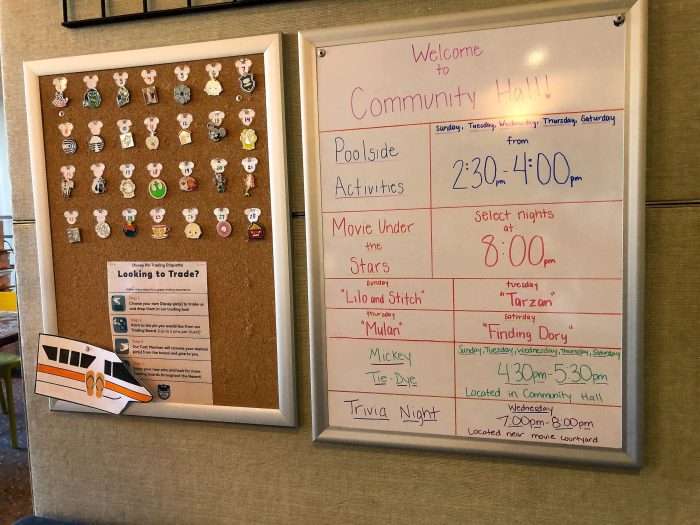 Disney Pin Trading Etiquette
Looking to Trade?
Step 1
Choose your own Disney pin(s) to trade us
and drop them in our trading box!
Step 2
Point to the pin you would like from our
Trading Board. (Up to 2 pins per Guest)
Step 3
Our Cast Member will remove your desired
pin(s) from the board and give to you.
Enjoy your new pins and look for more
trading boards throughout this Resort!
Welcome
to
Community Hall!
Poolside
Activities
Sunday, Tuesday, Wednesday, Thursday, Saturday
from
2:30pm-4:00pm
Movie Under
the
Stars
Select nights
at:
8:00pm
Sunday
"Lilo and Stitch"
Tuesday
"Tarzan"
Thursday
"Mulan"
Saturday
"Finding Dory"
Mickey
Tie-Dye
Sunday, Tuesday, Wednesday, Thursday,
4:30pm-5:30pm
Located in Community Hall
Trivia Night
Wednesday
7:00pm-8:00pm
Located near movie courtyard